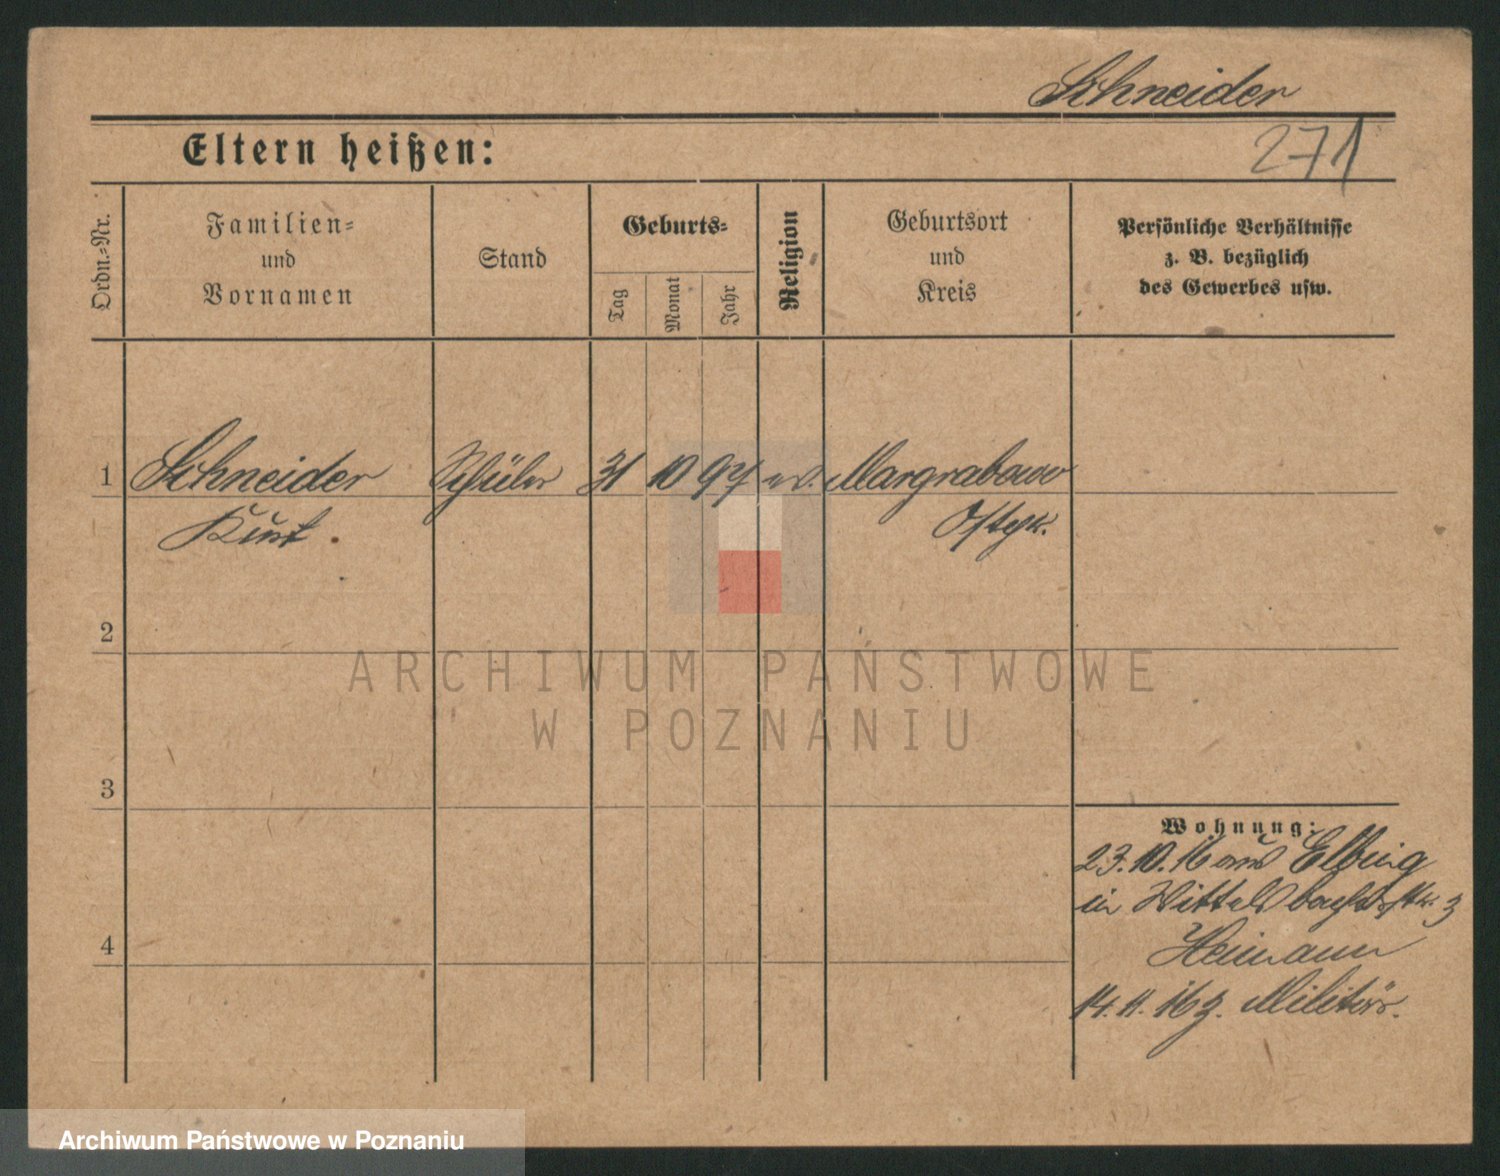 Schneider
Eltern heißen:
271
Ordn.-Nr.
Familien-
und
Vornamen
Stand
Geburts-
Tag
Monat
Jahr
Religion
Geburtsort
und
Kreis
Persönliche Verhältnisse
z. B. bezüglich
des Gewerbes usw.
1 Schneider Schüler 31 10 97 ev. Margrabowo
Kurt. Ostpr.
2
ARCHIWUM PAŃSTWOWE
W POZNANIU
3
Wohnung:
23.10.16 aus Elbing
in Wittelsbacherstr. 3
Heimann
4
14.11.16 z. Militär.
Archiwum Państwowe w Poznaniu